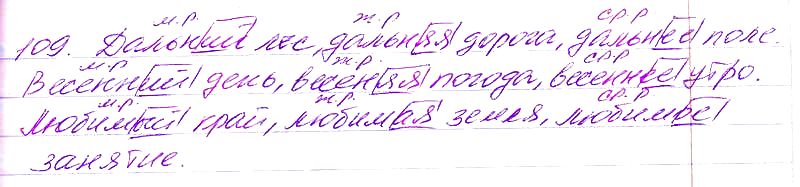 м.р. ж.р ср.р
109. Дальний лес, дальняя дорога, дальнее поле.
м.р ж.р. ср.р
Весенний день, весенняя погода, весеннее утро.
м.р. ж.р. ср.р
Любимый край, любимая земля, любимое
занятие.